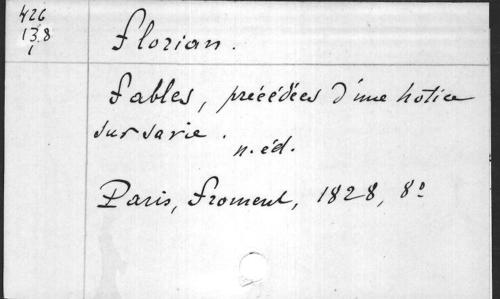 426
13.8
1
Florian.
Fables, précédées d'une notice
sur sa vie.
n. éd.
Paris, Froment, 1828, 8°